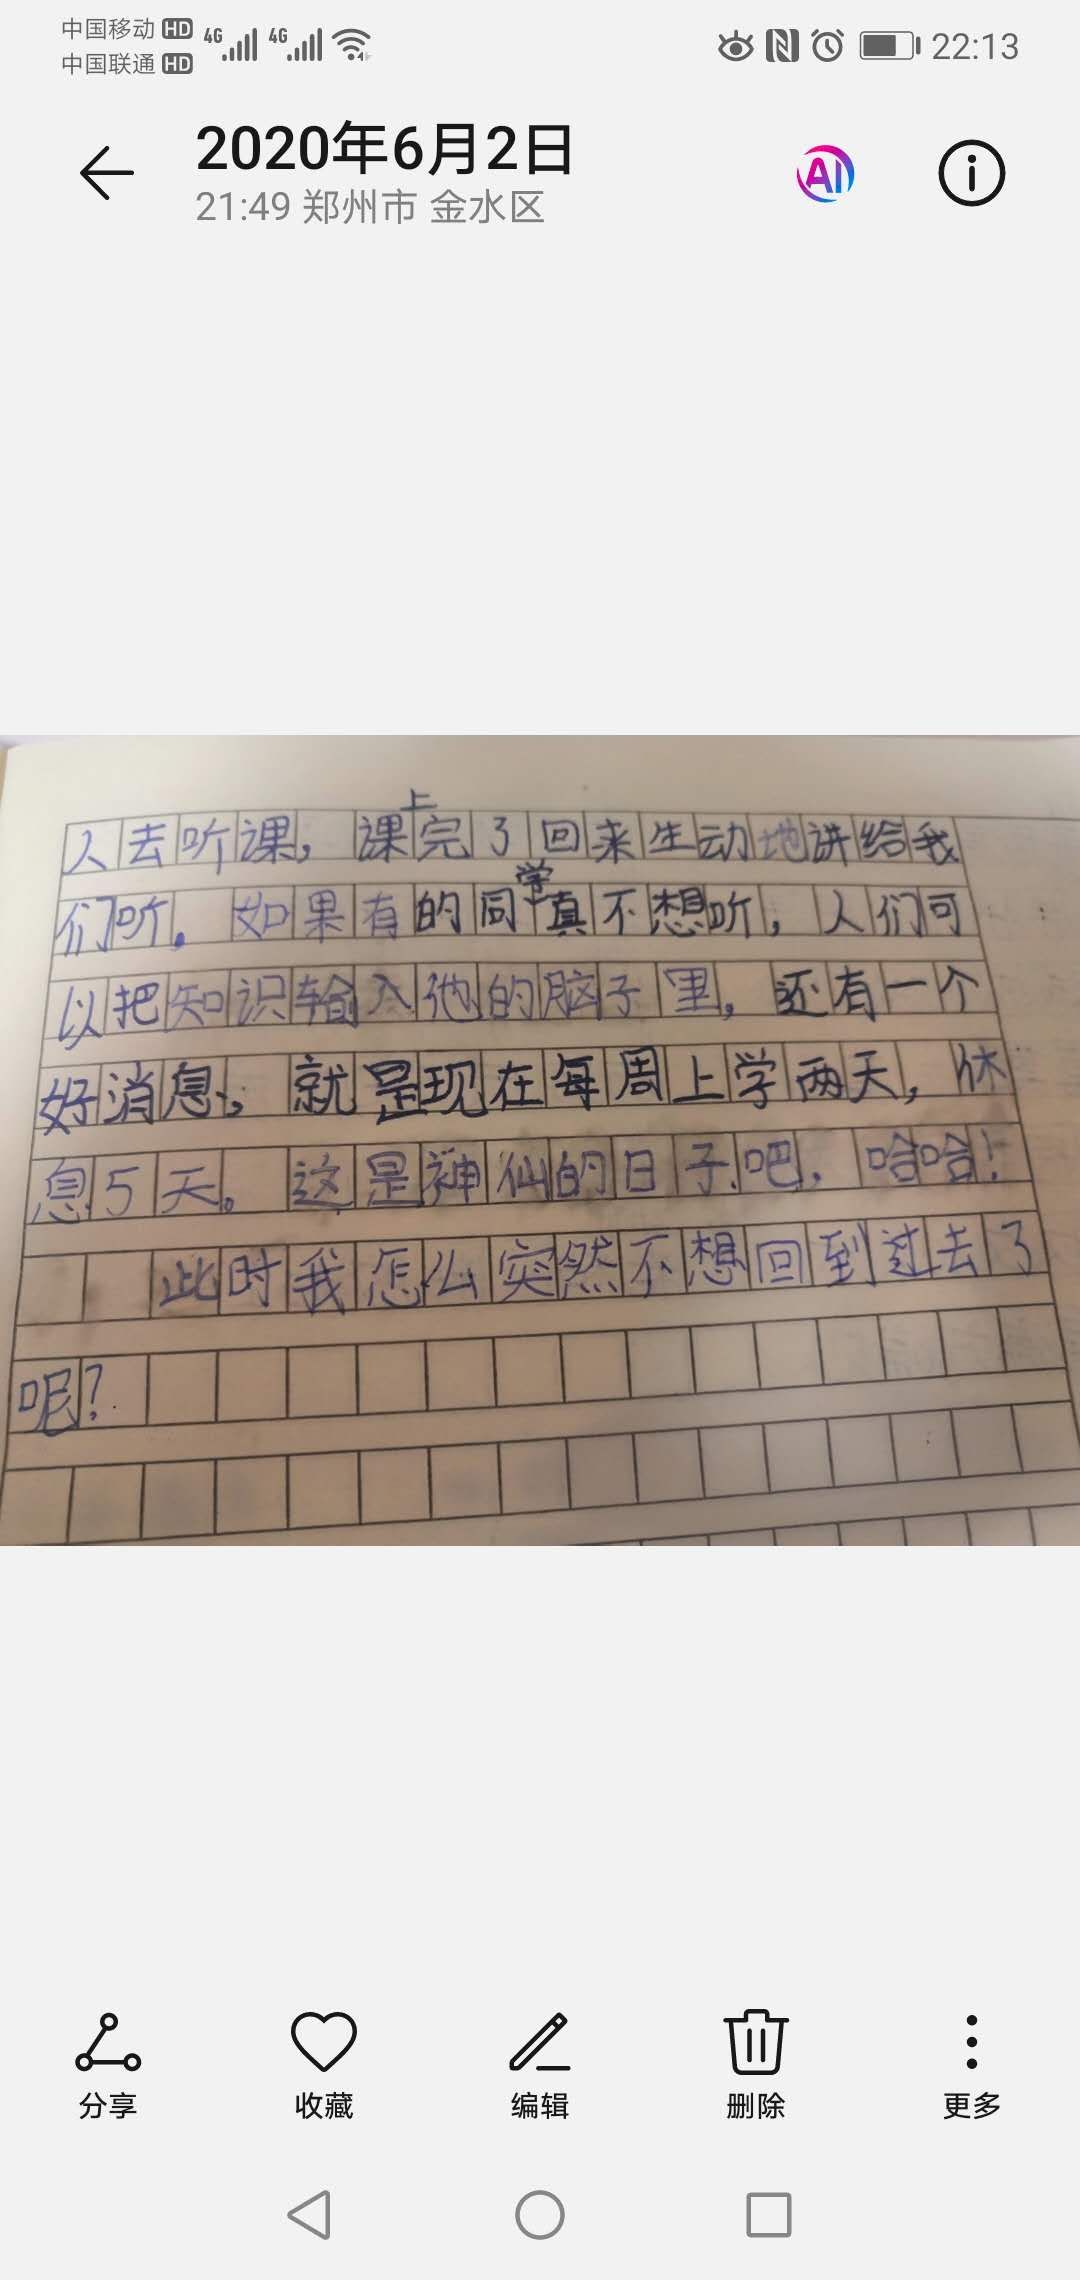 中国移动 HD 4G 4G 22:13
中国联通 HD
2020年6月2日
21:49 郑州市 金水区
AI
人去听课，课上完了回来生动地讲给我
们听。如果有的同学真不想听，人们可
以把知识输入他的脑子里。还有一个
好消息，就是现在每周上学两天，休
息5天。这是神仙的日子吧，哈哈！
此时我怎么突然不想回到过去了
呢？
分享 收藏 编辑 删除 更多